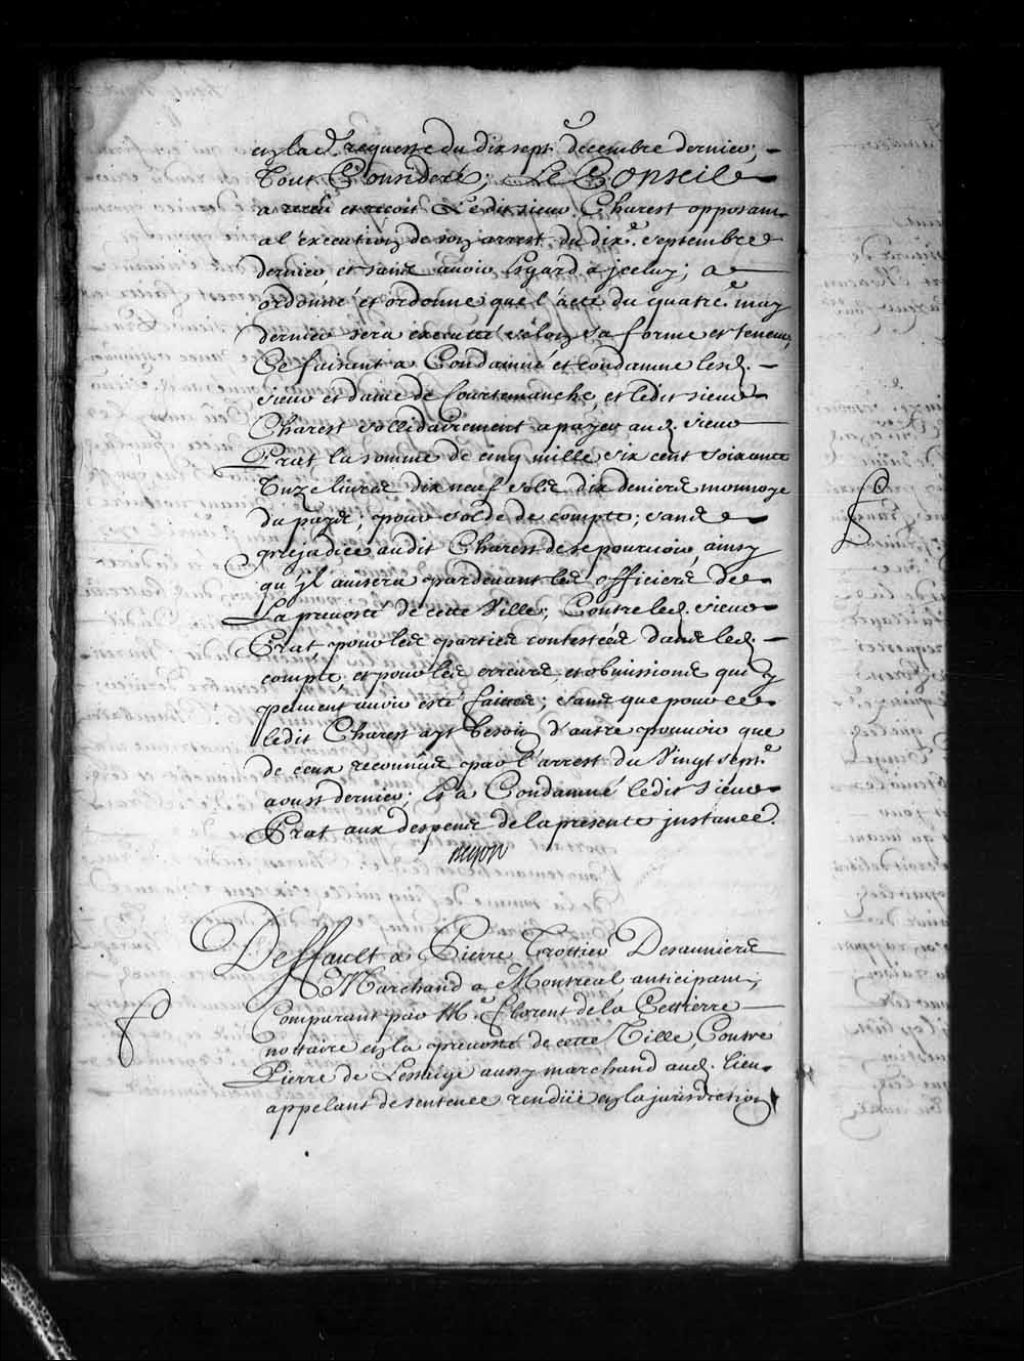 en la d. requeste du dix sept.e decembre dernier;
Tout Consideré; Le Conseil
a receu et reçoit Ledit sieur Charest opposant
a l'execution de son arrest du dix.e septembre
dernier, et sans avoir Esgard a jceluy; a
ordonné et ordonne que l'acte du quatre.e may
dernier sera executé selon sa forme et teneur,
Ce faisant a Condamné et condamne lesd.
sieur et dame de Courtemanche, et ledit sieur
Charest sollidairement a payer aud. sieur
Prat la somme de cinq mille six cent soixante
Unze livres dix neuf sols dix deniers monnoye
du pays; pour solde de compte; sans
prejudice audit Charest de se pourvoir, ainsy
qu'jl avisera pardevant les officiers de
La prevosté de cette Ville, Contre led. sieur
Prat, pour les parties contestées dans led.
compte, et pour les erreurs, et obmissions qui y
peuvent avoir esté faites; sans que pour ce
ledit Charest ayt besoin d'autre pouvoir que
de ceux reconnus par l'arrest du Vingt sept.e
aoust dernier; Et a Condamné ledit sieur
Prat aux despens de la presente jnstance.
Begon
Deffault a Pierre Trottier Desauniers
Marchand a Montreal anticipant,
Comparant par M.e Florent de la Cettierre
nottaire en la prevosté de cette Ville, Contre
Pierre de Lestage aussy marchand aud. lieu
appelant de sentence rendüe en la jurisdiction